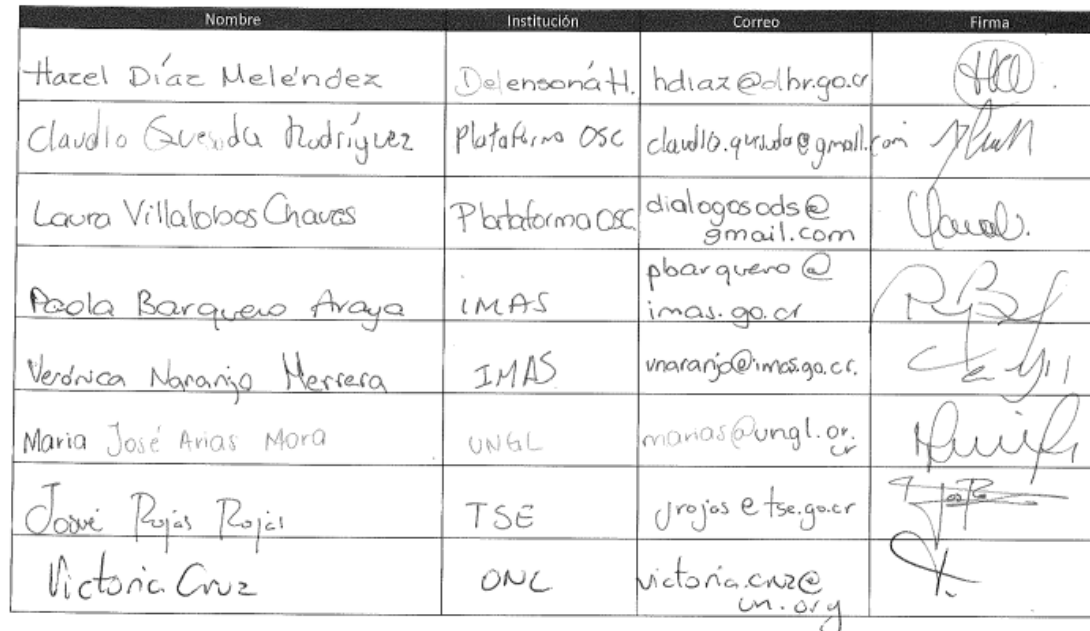 Nombre Institución Correo Firma
Hazel Díaz Meléndez Defensoría H. hdiaz@dhr.go.cr
Claudio Quesada Rodríguez Plataforma OSC claudio.quesada@gmail.com
Laura Villalobos Chaves Plataforma OSC dialogosods@
gmail.com
pbarquero@
Paola Barquero Araya IMAS imas.go.cr
Verónica Naranjo Herrera IMAS vnaranjo@imas.go.cr.
Maria José Arias Mora UNGL marias@ungl.or.
cr
Josué Rojas Rojas TSE jrojas@tse.go.cr
Victoria Cruz victoria.cruz@
un.org